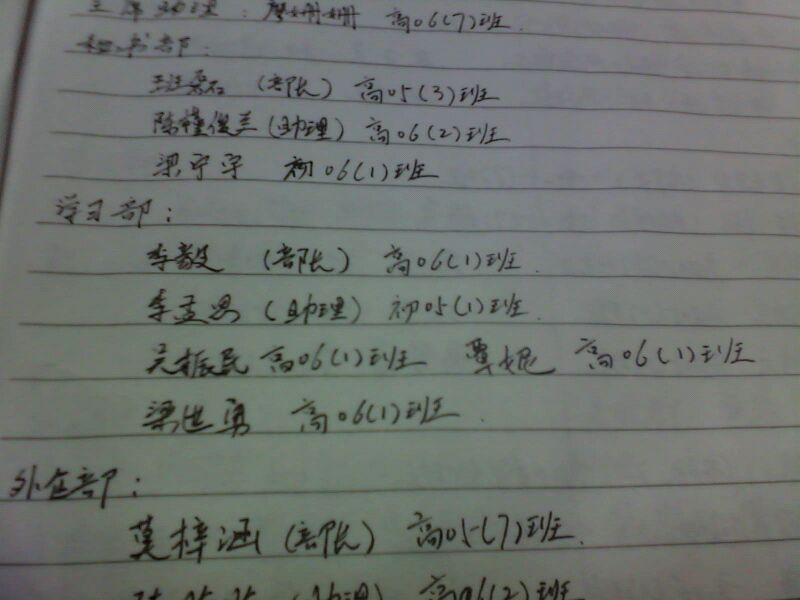 主席助理：廖姗姗 高06(7)班.
秘书部：
(部长) 高05(3)班
陈槿俊兰(助理) 高06(2)班
梁宁宁 初06(1)班
学习部：
李毅 (部长) 高06(1)班.
李孟思 (助理) 初05(1)班.
吴振民 高06(1)班 覃妮 高06(1)班
梁世勇 高06(1)班.
外企部：
莫梓涵 (部长) 高05(7)班.
(助理) 高06(2)班